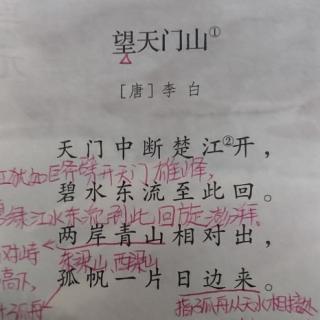 望天门山①
[唐]李白
天门中断楚江②开，
江犹如巨斧劈开天门雄峰，
碧水东流至此回。
绿江水东流到此回旋澎湃。
两岸青山相对出，
对峙
东梁山 西梁山
孤帆一片日边来。
孤舟
指孤舟从天水相接处